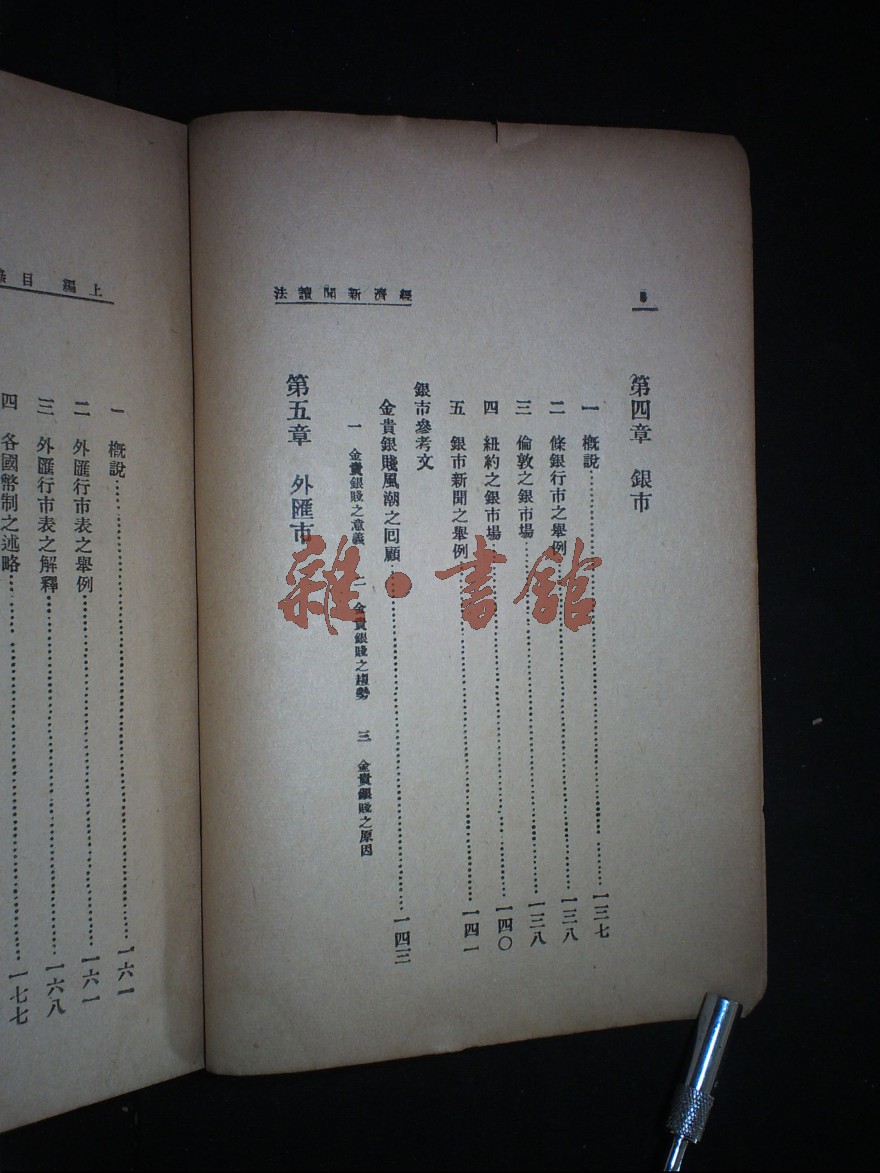 經濟新聞讀法
第四章 銀市
一 概說……一三七
二 條銀行市之舉例……一三八
三 倫敦之銀市場……一三八
四 紐約之銀市場……一四〇
五 銀市新聞之舉例……一四一
銀市參考文
金貴銀賤風潮之回顧……一四三
一 金貴銀賤之意義 二 金貴銀賤之趨勢 三 金貴銀賤之原因
第五章 外匯市
上編 目錄
一 概說……一六一
二 外匯行市表之舉例……一六一
三 外匯行市表之解釋……一六八
四 各國幣制之述略……一七七
雜·書館